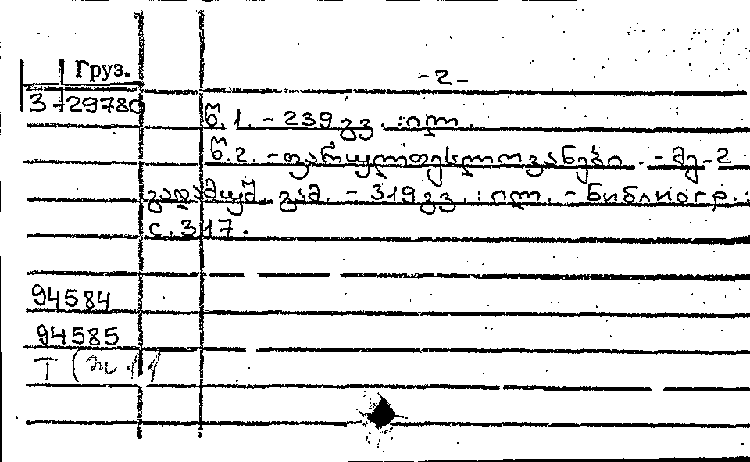 Груз.
-2-
3-29780
წ. 1. - 239 გვ. : ილ.
წ. 2. - ფარულთესლოვანები. - მე-2
გადამუშ. გამ. - 319 გვ. : ილ. - Библиогр.:
с. 317.
94584
94585